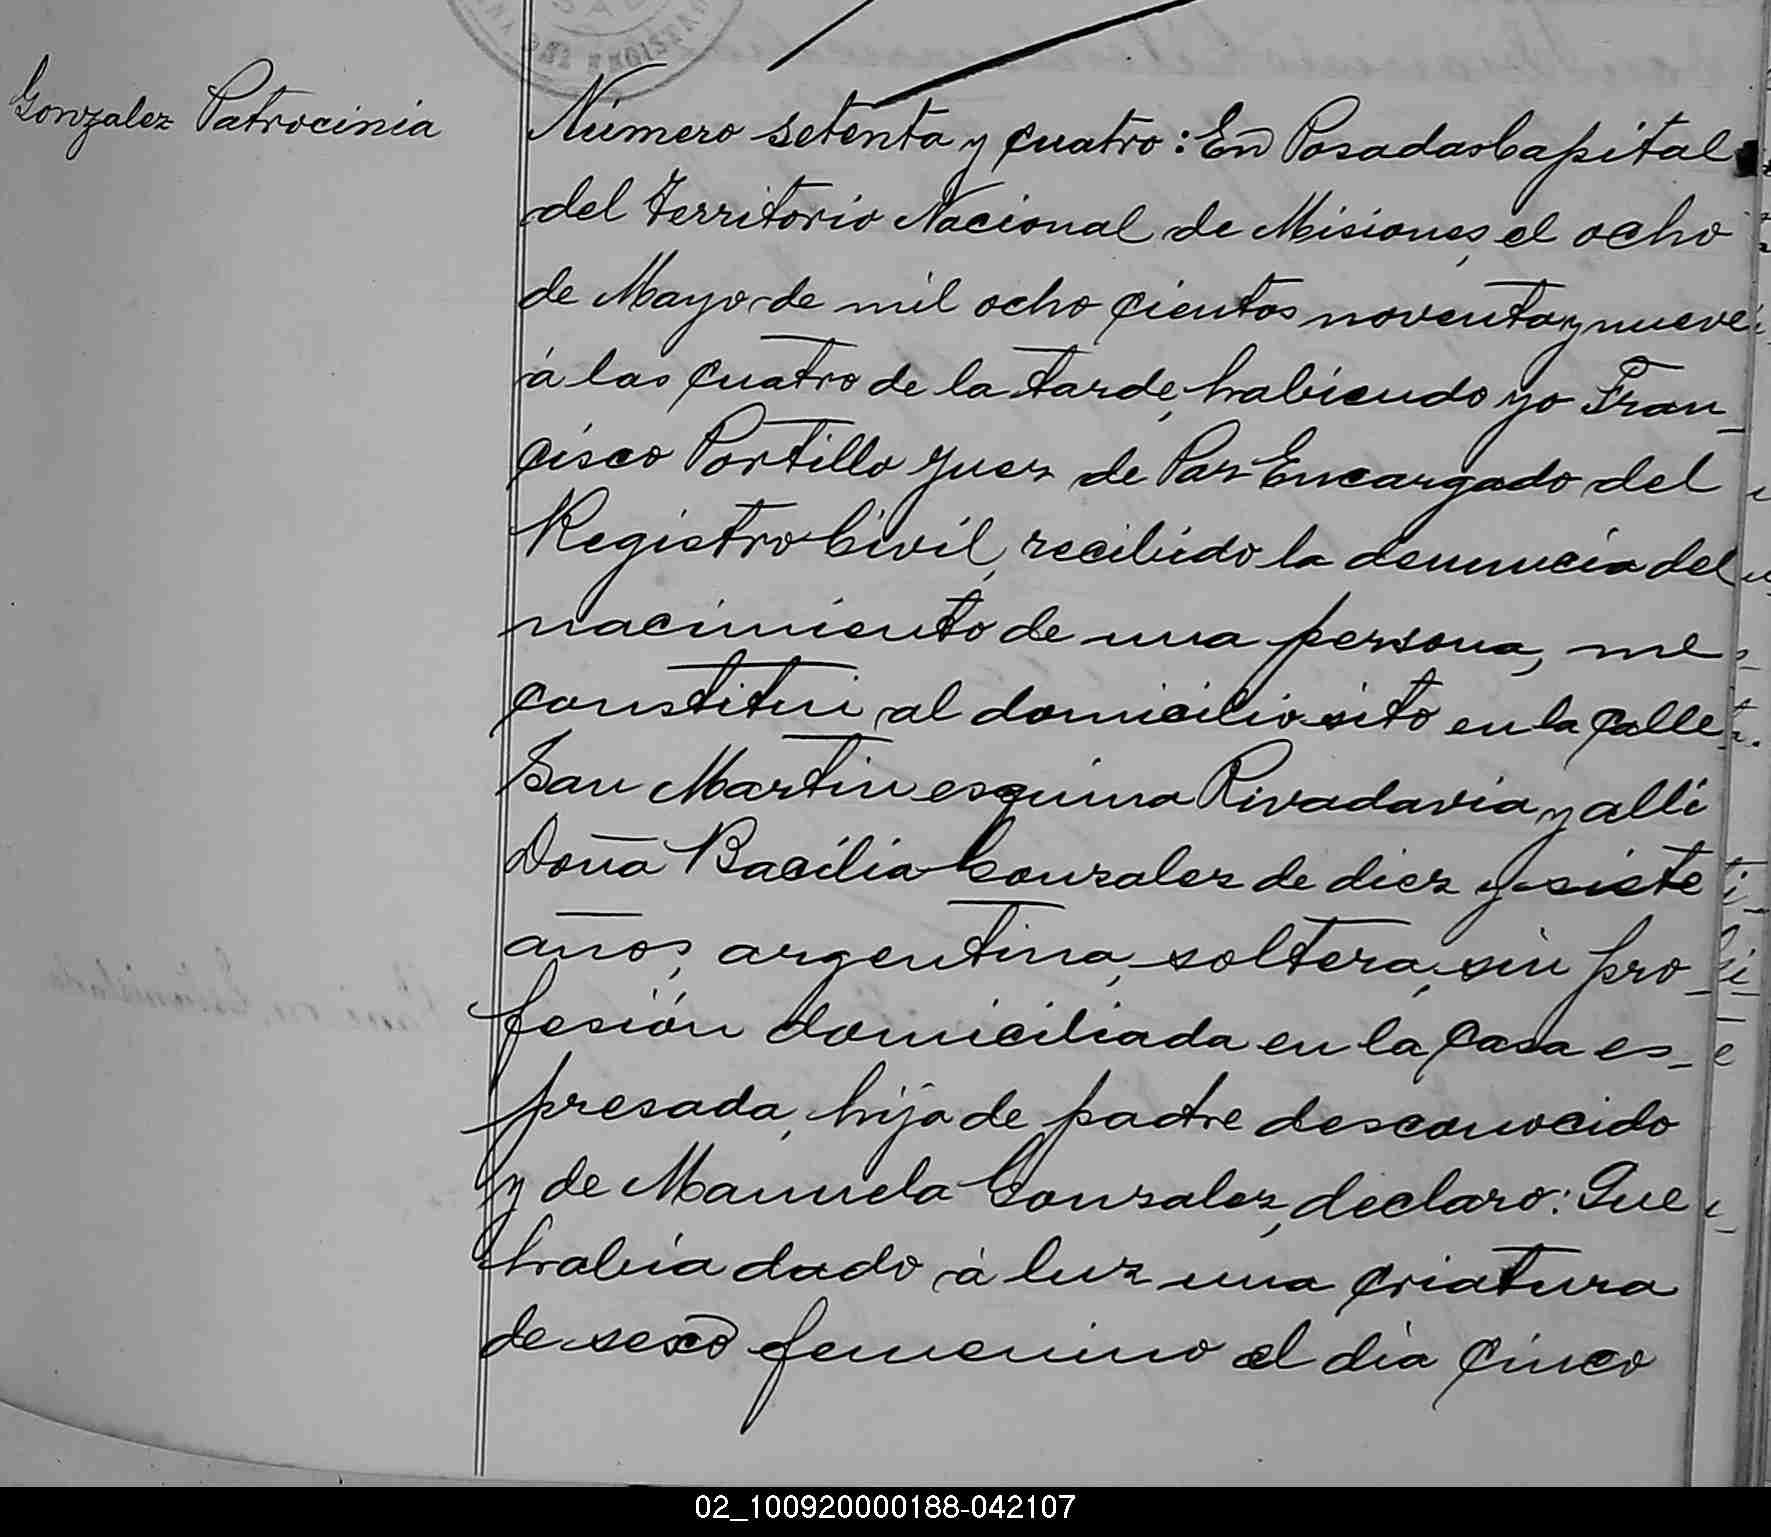 Gonzalez Patrocinia
Número setenta y cuatro: En Posadas Capital
del Territorio Nacional de Misiones, el ocho
de Mayo de mil ocho cientos noventa y nueve
á las cuatro de la tarde, habiendo yo Fran_
cisco Portillo Juez de Paz Encargado del
Registro Civil, recibido la denuncia del
nacimiento de una persona, me
constitui al domicilio sito en la calle
San Martin esquina Rivadavia y alli
Doña Bacilia Gonzalez de diez y siete
años, argentina, soltera, sin pro_
fesión domiciliada en la casa es_
presada, hija de padre desconocido
y de Manuela Gonzalez, declaro: Que
habia dado á luz una criatura
de sexo femenino el dia cinco
02_100920000188-042107